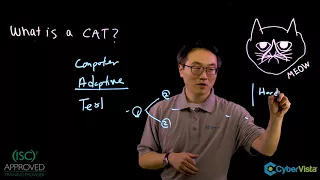 What is a CAT?
Computer
Adaptive
Test
1
2
2
Hard
MEOW
(ISC)²
APPROVED
TRAINING PROVIDER
CyberVista